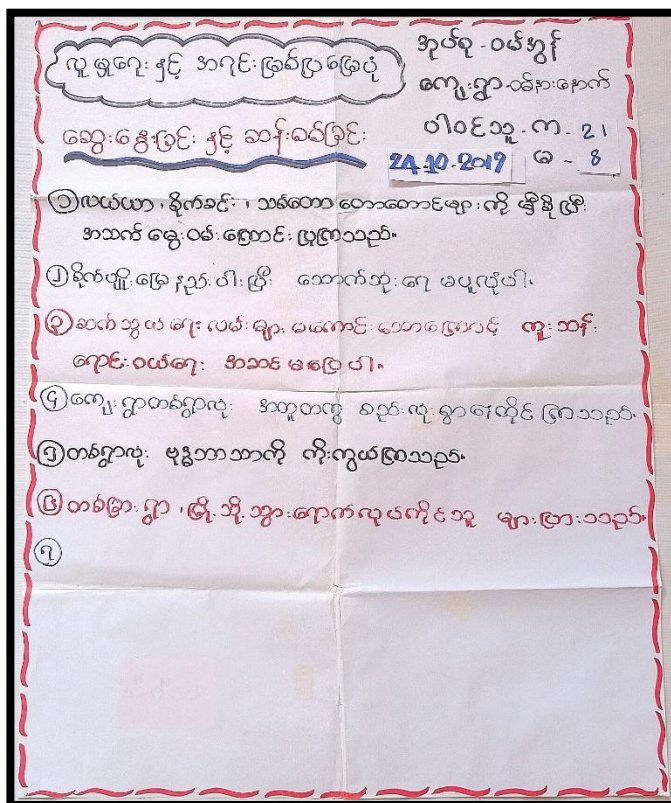 လူမှုရေး နှင့် အရင်းမြစ်ပြမြေပုံ
ဆွေးနွေးခြင်း နှင့် ဆန်းစစ်ခြင်း
အုပ်စု - ဝမ်အွန်
ကျေးရွာ - ဝမ်နားနောက်
ပါဝင်သူ - က - 21
24.10.2019 မ - 8
၁ လယ်ယာ ၊ စိုက်ခင်း ၊ သစ်တော တောတောင်များကို မှီခိုပြီး
အသက်မွေးဝမ်းကြောင်း ပြုကြသည်။
၂ စိုက်ပျိုးမြေနည်းပါးပြီး သောက်သုံးရေ မပူလုံပါ။
၃ ဆက်သွယ်ရေးလမ်းများ မကောင်းသောကြောင့် ကူးသန်း
ရောင်းဝယ်ရေး အဆင်မပြေပါ။
၄ ကျေးရွာတစ်ရွာလုံး အတူတကွ စည်းလုံးစွာနေထိုင်ကြသည်။
၅ တစ်ရွာလုံး ဗုဒ္ဓဘာသာကို ကိုးကွယ်ကြသည်။
၆ တစ်ခြားရွာ ၊ မြို့သို့သွားရောက်လုပ်ကိုင်သူ များပြားသည်။
၇